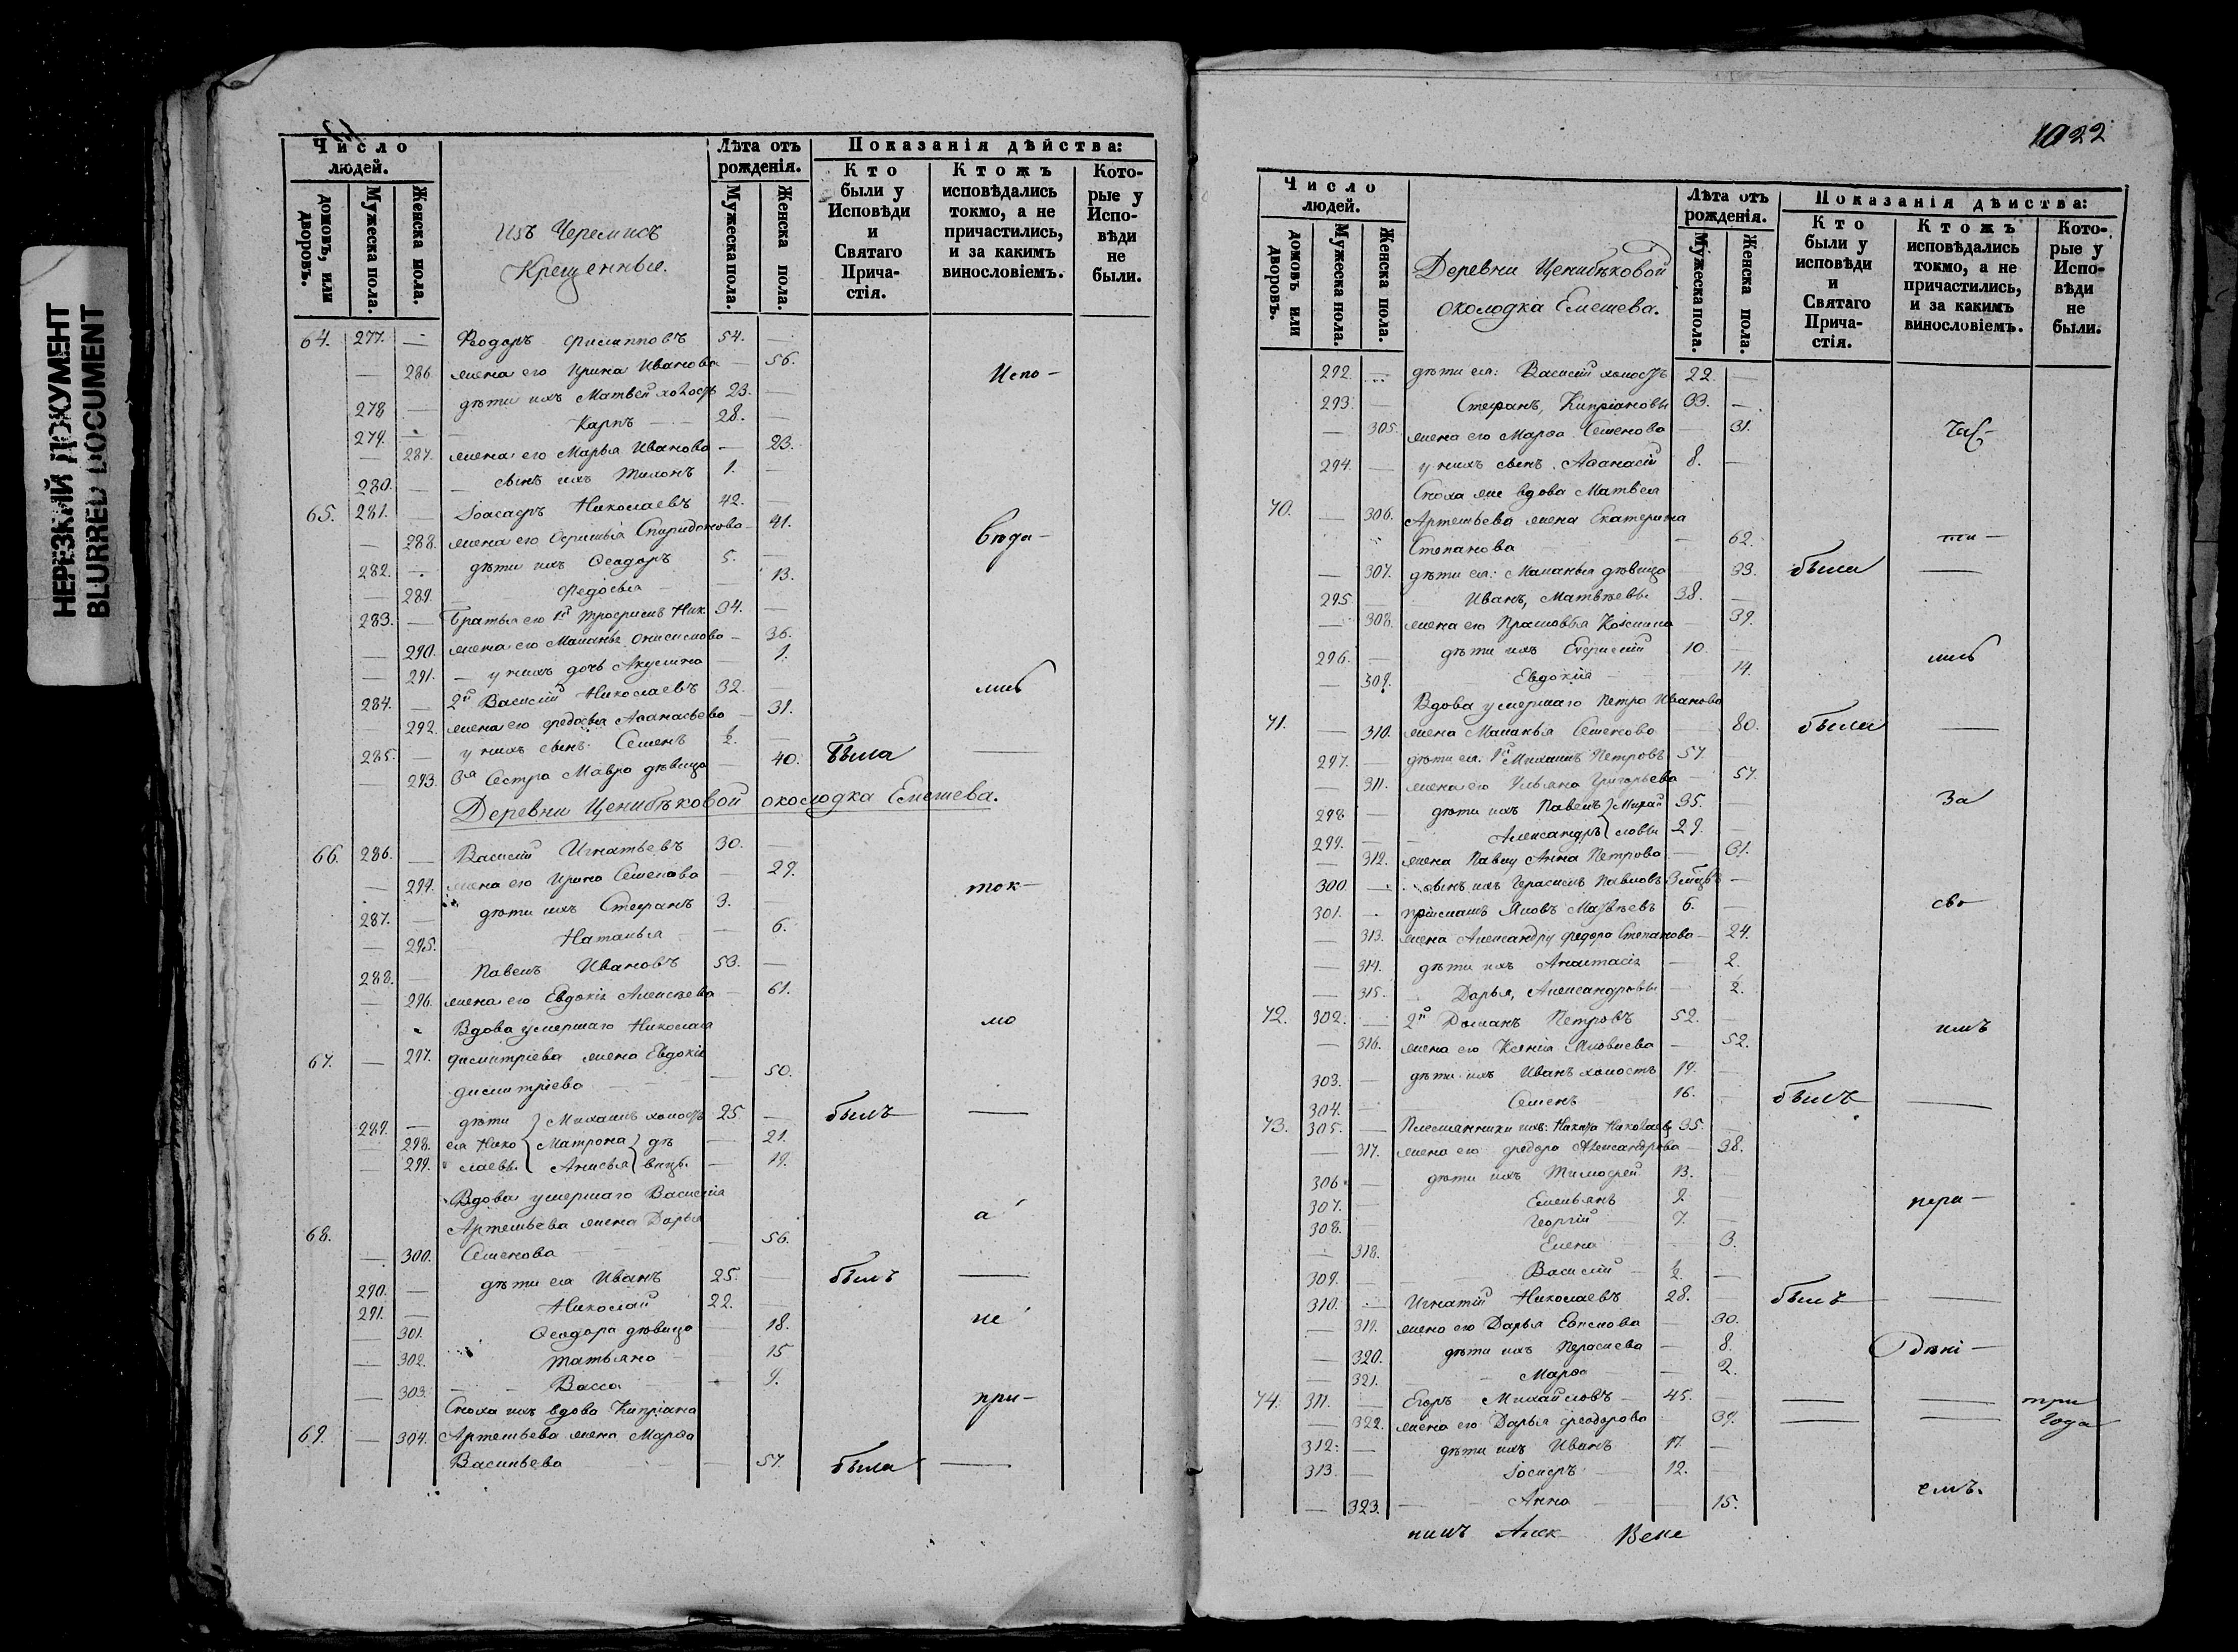 НЕРЕЗКИЙ ДОКУМЕНТ
BLURRED DOCUMENT
Число людей.
домовъ, или дворовъ.
Мужеска пола.
Женска пола.
Изъ Черемисъ
Крещенные.
Лѣта отъ рожденія.
Мужеска пола.
Женска пола.
Показанія дѣйства:
Кто были у Исповѣди и Святаго Прича-стія.
Ктожъ исповѣдались токмо, а не причастились, и за какимъ винословіемъ.
Кото-рые у Испо-вѣди не были.
64. 277. — Ѳеодоръ Филипповъ 54. —
— 286. жена его Ирина Иванова — 56. Испо-
278 — дѣти ихъ Матвей холостъ 23. —
279. — Карпъ — 28. —
— 287. жена его Марья Иванова — 23.
280. — сынъ ихъ 1. —
65. 281. — Іоасафъ Николаевъ 42. —
— 288. жена его Спиридонова — 41. вѣда-
282. — дѣти ихъ Ѳеодоръ 5. —
— 289. Федосья — 13.
283. — Братья его 1й Трофимъ Ник. 34. —
— 290. жена его Маланья Онисимова — 36.
— 291. у нихъ дочь Акулина — 1.
284. — 2й Василий Николаевъ 32. — лись
— 292. жена его Федосья Аѳанасьева — 31.
285. — у нихъ сынъ Семенъ ½. —
— 293. 3я Сестра Мавра дѣвица — 40. была —
Деревни Ценибѣковой околодка Емешева.
66. 286. — Василий Игнатьевъ 30. —
— 294. жена его Ирина Семенова — 29. ток-
287. — дѣти ихъ Стефанъ 3. —
— 295. Наталья — 6.
288. — Павелъ Ивановъ 53. —
— 296. жена его Евдокія Алексѣева — 61.
Вдова умершаго Николая мо
67. — 297. Димитріева жена Евдокія
Димитріева — 50.
289. — дѣти Михаилъ холостъ 25. — былъ —
— 298. ея Нико Матрона дѣ — 21.
— 299. лаевы Анисья вицы — 19.
Вдова умершаго Василія
68. Артемьева жена Дарья а
— 300. Семенова — 56.
290. — дѣти ея Иванъ 25. — былъ —
291. — Николай 22. — не
— 301. Ѳеодора дѣвица — 18.
— 302. Татьяна — 15
— 303. Васса — 9.
Сноха ихъ вдова Кипріана при-
69. — 304. Артемьева жена Марѳа
Васильева — 57. была —
1022
Число людей.
домовъ или дворовъ.
Мужеска пола.
Женска пола.
Деревни Ценибѣковой
околодка Емешева.
Лѣта отъ рожденія.
Мужеска пола.
Женска пола.
Показанія дѣйства:
Кто были у исповѣди и Святаго Прича-стія.
Ктожъ исповѣдались токмо, а не причастились, и за какимъ винословіемъ.
Кото-рые у Испо-вѣди не были.
292. — дѣти ея: Василий холостъ 22. —
293. — Стефанъ, Кипріановы 33. —
— 305. жена его Марѳа Семенова — 31. час-
294. — у нихъ сынъ Аѳанасій 8. —
Сноха же вдова Матвея
70. — 306. Артемьева жена Екатерина
Степанова — 62. ти-
— 307. дѣти ея: Маланья дѣвица — 33. была —
295 — Иванъ, Матвѣевы 38. —
— 308. жена его Прасковья Козмина — 39.
296. — дѣти ихъ 10. — лись
— 309. Евдокія — 14.
Вдова умершаго Петра Иванова
71. — 310. жена Маланья Семенова — 80. была —
297. — дѣти ея. 1й Михаилъ Петровъ 57. —
— 311. жена его Ульяна Григорьева — 57.
298 — дѣти ихъ Павелъ Михай 35. — за
299. — Александръ ловы 29. —
— 312. жена Павлу Анна Петрова — 31.
300. — сынъ ихъ Герасимъ Павловъ 3 мѣсцъ —
301. — пріемышъ Яковъ Матвѣевъ 6. — сво
— 313. жена Александру Федора Степанова — 24.
— 314. дѣти ихъ Анастасія — 2.
— 315. Дарья, Александровы — 2.
72. 302. — 2й Романъ Петровъ 52. — имъ
— 316. жена его Ксенія Яковлева — 52.
303. — дѣти ихъ Иванъ холостъ 19. —
304. — Семенъ 16. — былъ —
73. 305. — Племянники ихъ: Никита Николаевъ 35. —
— 317. жена его Федора Александрова — 38.
306. — дѣти ихъ Тимофей 13. —
307. — Емельянъ 9. — нера-
308. — Георгій 7. —
— 318. Елена — 3.
309. — Василий ½. —
310. — Игнатій Николаевъ 28. — былъ —
— 319. жена его Дарья — 30.
— 320. дѣти ихъ — 8. дѣні-
— 321. Марѳа — 2.
74. 311. — Егоръ Михайловъ 45. — — — три
— 322. жена его Дарья Ѳеодорова — 39. — — года
312. — дѣти ихъ Иванъ 17. —
313. — Іосифъ 12. —
— 323. Анна — 15. емъ.